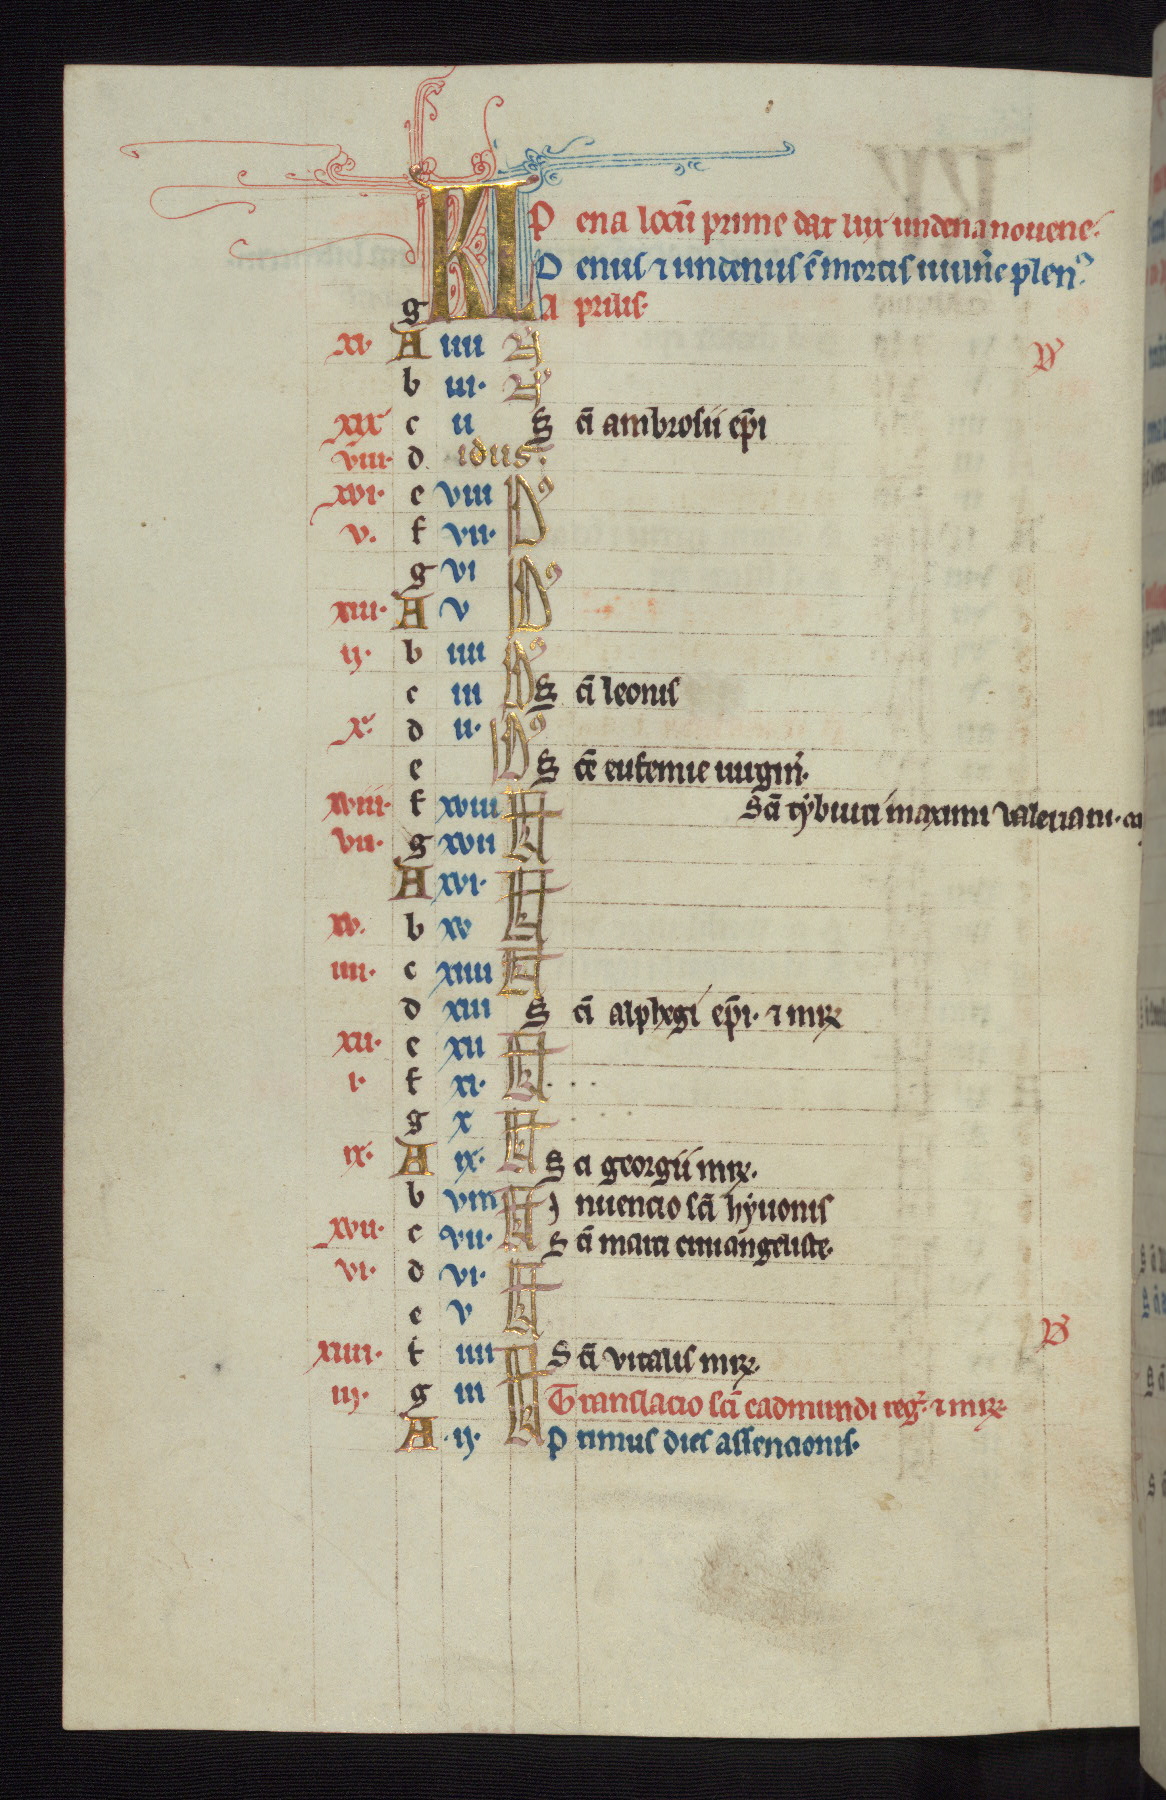 KL P ena locũ prime dat lux undena nouene.
D enus ⁊ undenus ẽ mortis
g A prilis.
xi. A iiii N D
b iii. N
xix c ii S c̃i ambrosii ep̃i
viii. d idus.
xvi. e viii Id
v. f vii.
g vi Id
xiii. A v
ii. b iiii Id
c iii S c̃i leonis
x. d ii. Id
e S c̃e eufemie uirgin̄.
xviii. f xviii kl S c̃i tyburcii maximi valeriani.
vii. g xvii
A xvi. kl
xv. b xv
iiii. c xiiii kl
d xiii S c̃i alphegi ep̃i. ⁊ mr̃
xii. e xii kl
i. f xi.
g x kl
ix. A ix. S c̃i georgii mr̃.
b viii kl I nuencio sc̃i hyuonis
xvii. c vii. S c̃i marci euuangeliste.
vi. d vi. kl
e v D
xiiii. f iiii kl S c̃i vitalis mr̃.
iii. g iii Translacio sc̃i eadmundi reg. ⁊ mr̃
A .ii. P rimus dies assencionis.